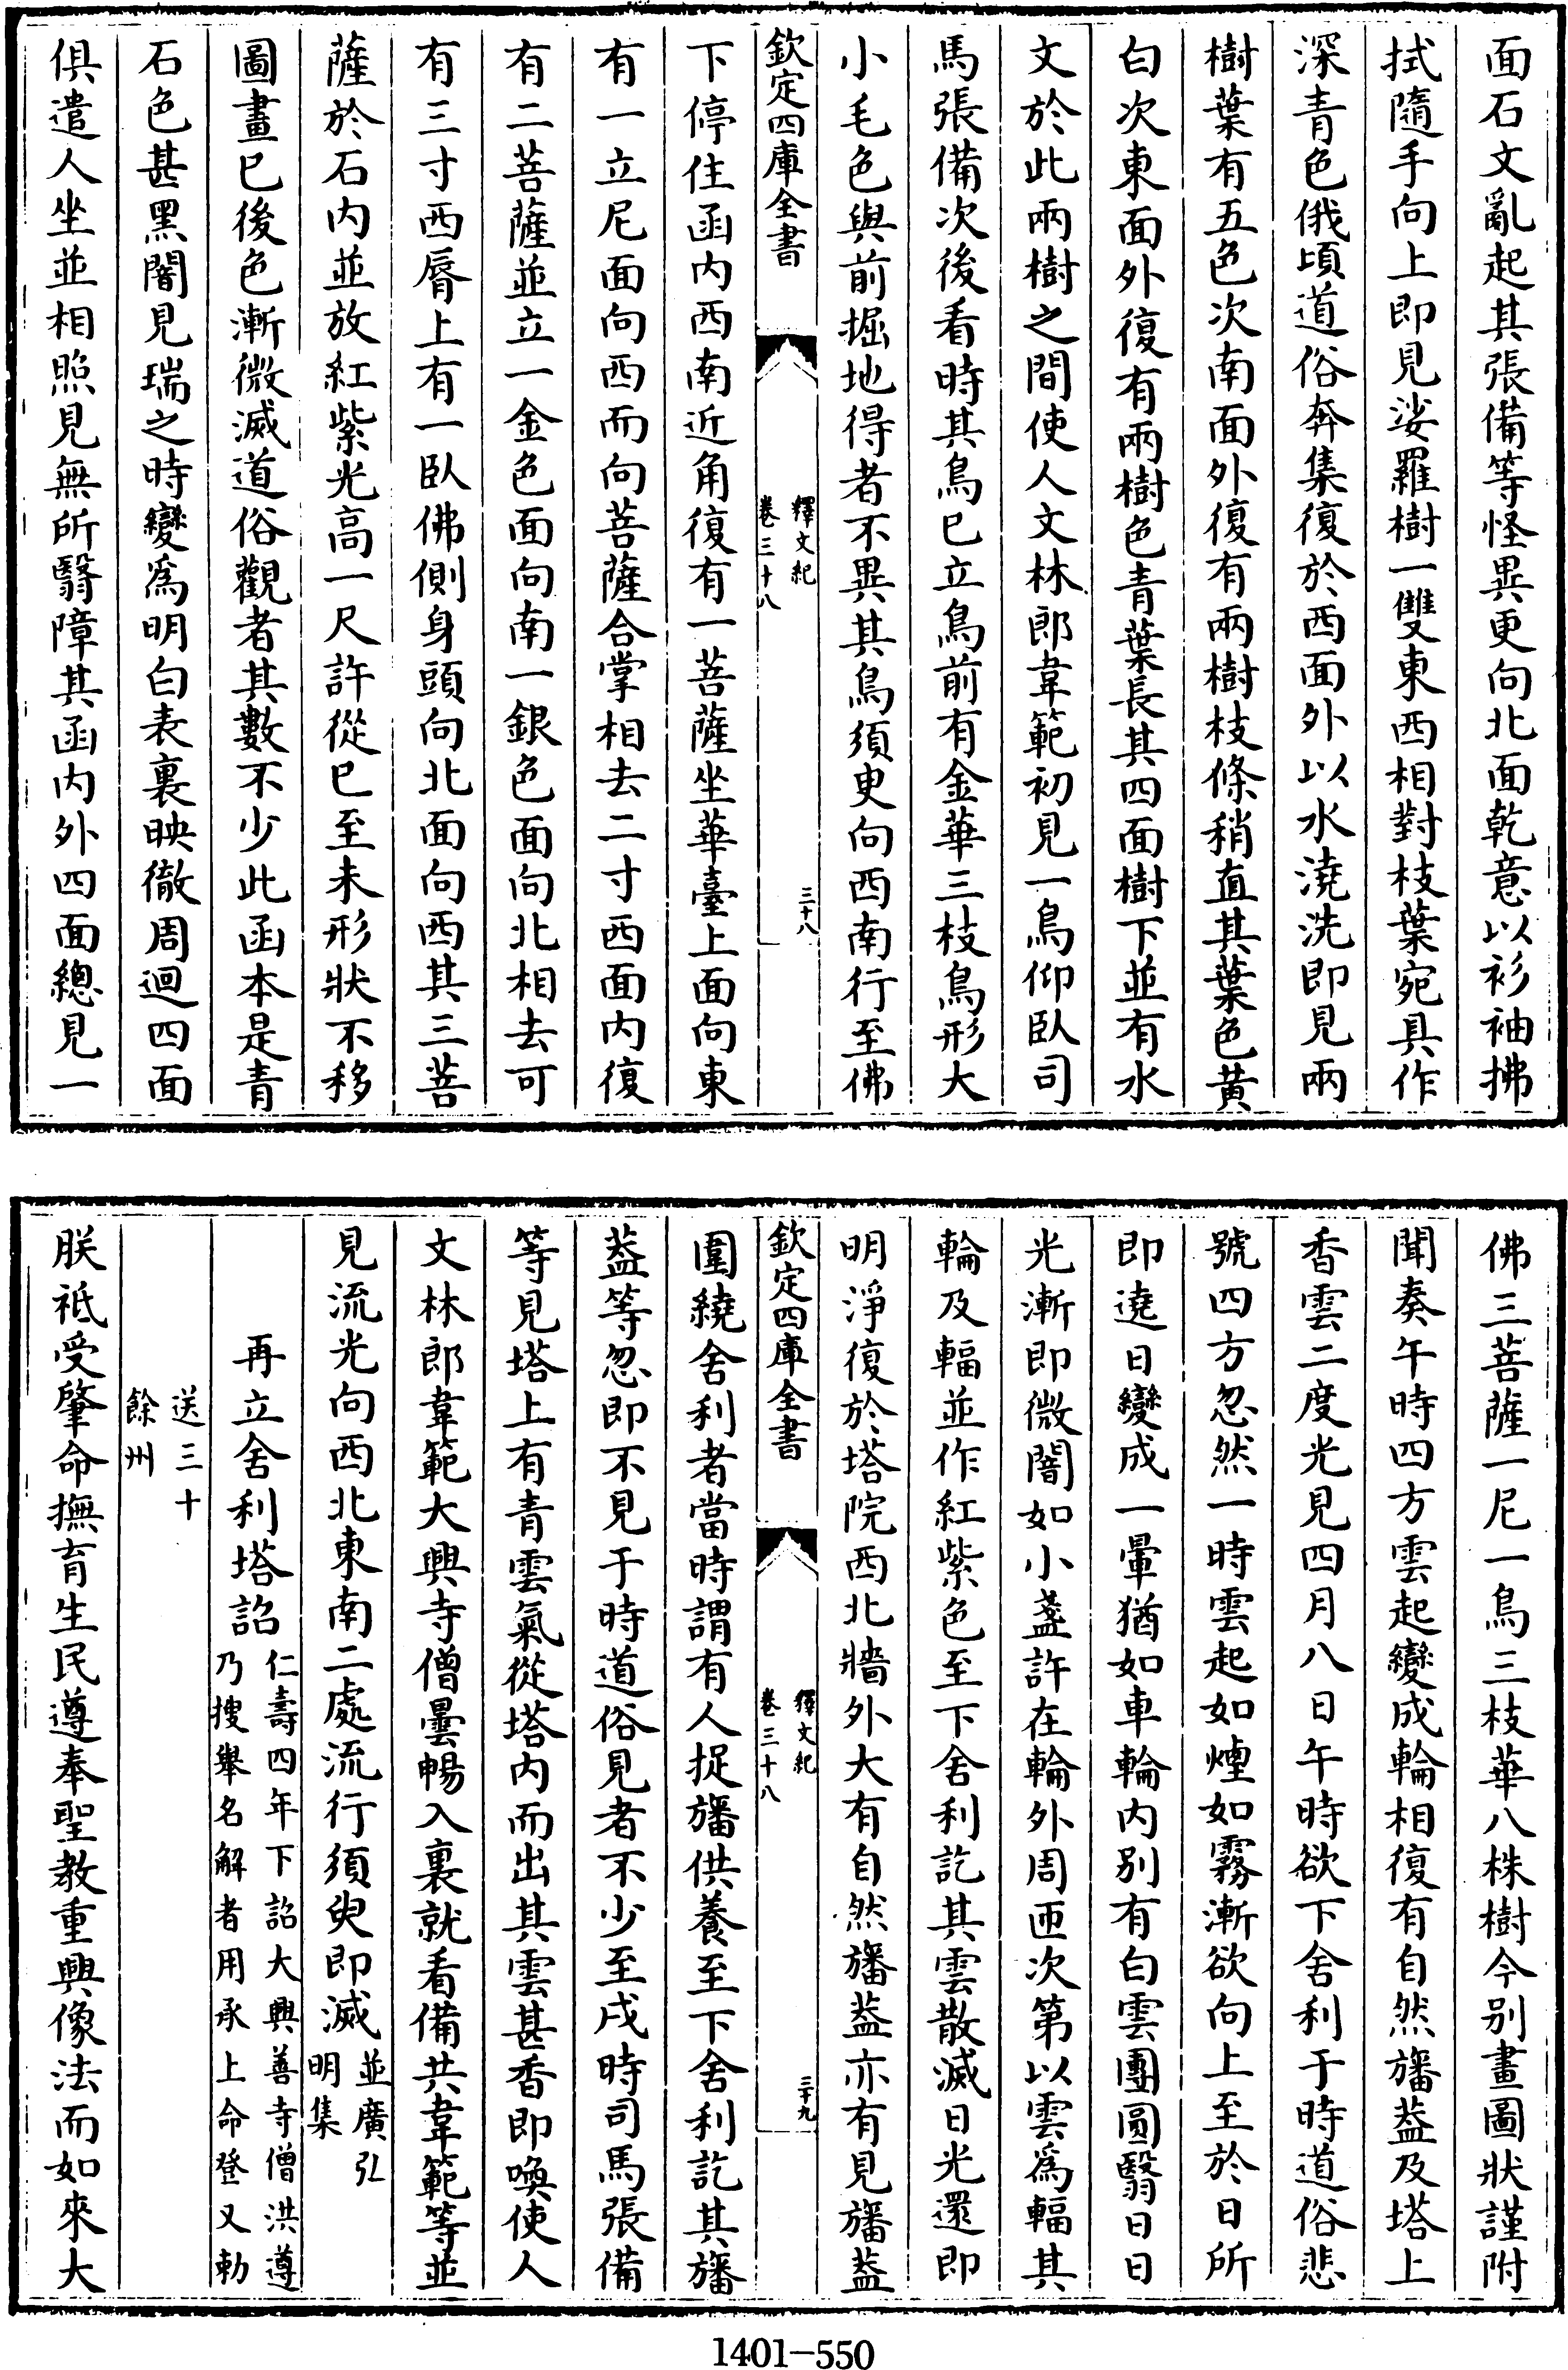 面石文亂起其張備等怪異更向北面乾意以衫袖拂
拭隨手向上即見娑羅樹一雙東西相對枝葉宛具作
深青色俄頃道俗奔集復於西面外以水澆洗即見兩
樹葉有五色次南面外復有兩樹枝條稍直其葉色黃
白次東面外復有兩樹色青葉長其四面樹下並有水
文於此兩樹之間使人文林郎韋範初見一鳥仰臥司
馬張備次後看時其鳥已立鳥前有金華三枝鳥形大
小毛色與前掘地得者不異其鳥須臾向西南行至佛
欽定四庫全書
釋文紀
卷三十八
三十八
下停住函内西南近角復有一菩薩坐華臺上面向東
有一立尼面向西而向菩薩合掌相去二寸西面内復
有二菩薩並立一金色面向南一銀色面向北相去可
有三寸西脣上有一臥佛側身頭向北面向西其三菩
薩於石内並放紅紫光高一尺許從巳至未形狀不移
圖畫巳後色漸微滅道俗觀者其數不少此函本是青
石色甚黑闇見瑞之時變爲明白表裏映徹周迴四面
俱遣人坐並相照見無所翳障其函内外四面總見一
佛三菩薩一尼一鳥三枝華八株樹今别畫圖狀謹附
聞奏午時四方雲起變成輪相復有自然旛葢及塔上
香雲二度光見四月八日午時欲下舍利于時道俗悲
號四方忽然一時雲起如煙如霧漸欲向上至於日所
即遶日變成一暈猶如車輪内别有白雲團圓翳日日
光漸即微闇如小盞許在輪外周匝次第以雲爲輻其
輪及輻並作紅紫色至下舍利訖其雲散滅日光還即
明淨復於塔院西北牆外大有自然旛葢亦有見旛葢
欽定四庫全書
釋文紀
卷三十八
三十九
圍繞舍利者當時謂有人捉旛供養至下舍利訖其旛
葢等忽即不見于時道俗見者不少至戌時司馬張備
等見塔上有青雲氣從塔内而出其雲甚香即喚使人
文林郎韋範大興寺僧曇暢入裏就看備共韋範等並
見流光向西北東南二處流行須臾即滅並廣弘
明集
再立舍利塔詔仁壽四年下詔大興善寺僧洪遵
乃搜舉名解者用承上命登又勅
送三十
餘州
朕祗受肇命撫育生民遵奉聖教重興像法而如來大
1401-550